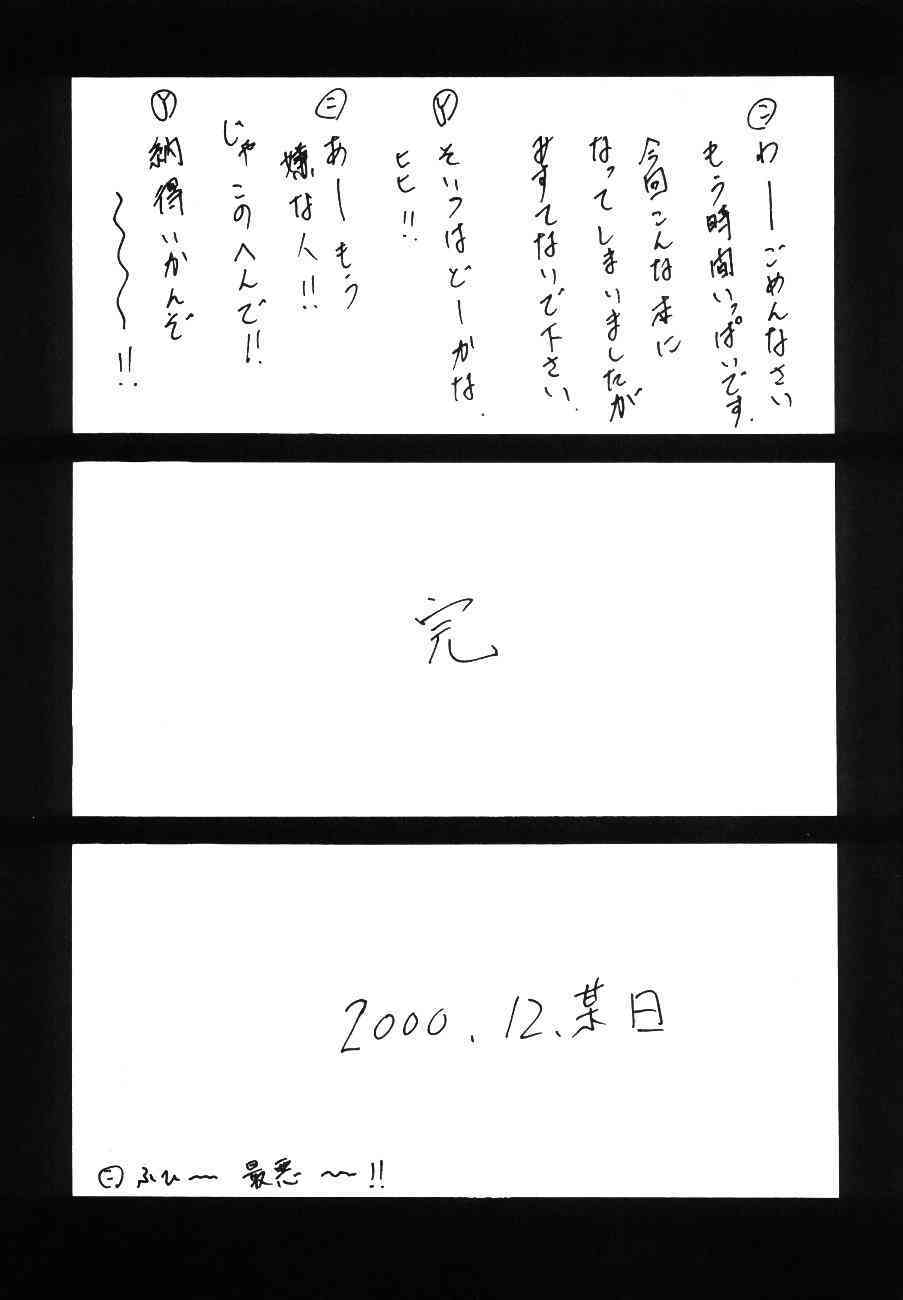 ㊁わーーごめんなさい
もう時間いっぱいです.
今回こんな本に
なってしまいましたが
みすてないで下さい.
Ⓨそいつはどーかな.
ヒヒ!!
㊁あーもう
嫌な人!!
じゃこのへんで!!
Ⓨ納得いかんぞ
〜〜〜〜!!
完
2000.12.某日
㊁ふひ〜 最悪〜!!